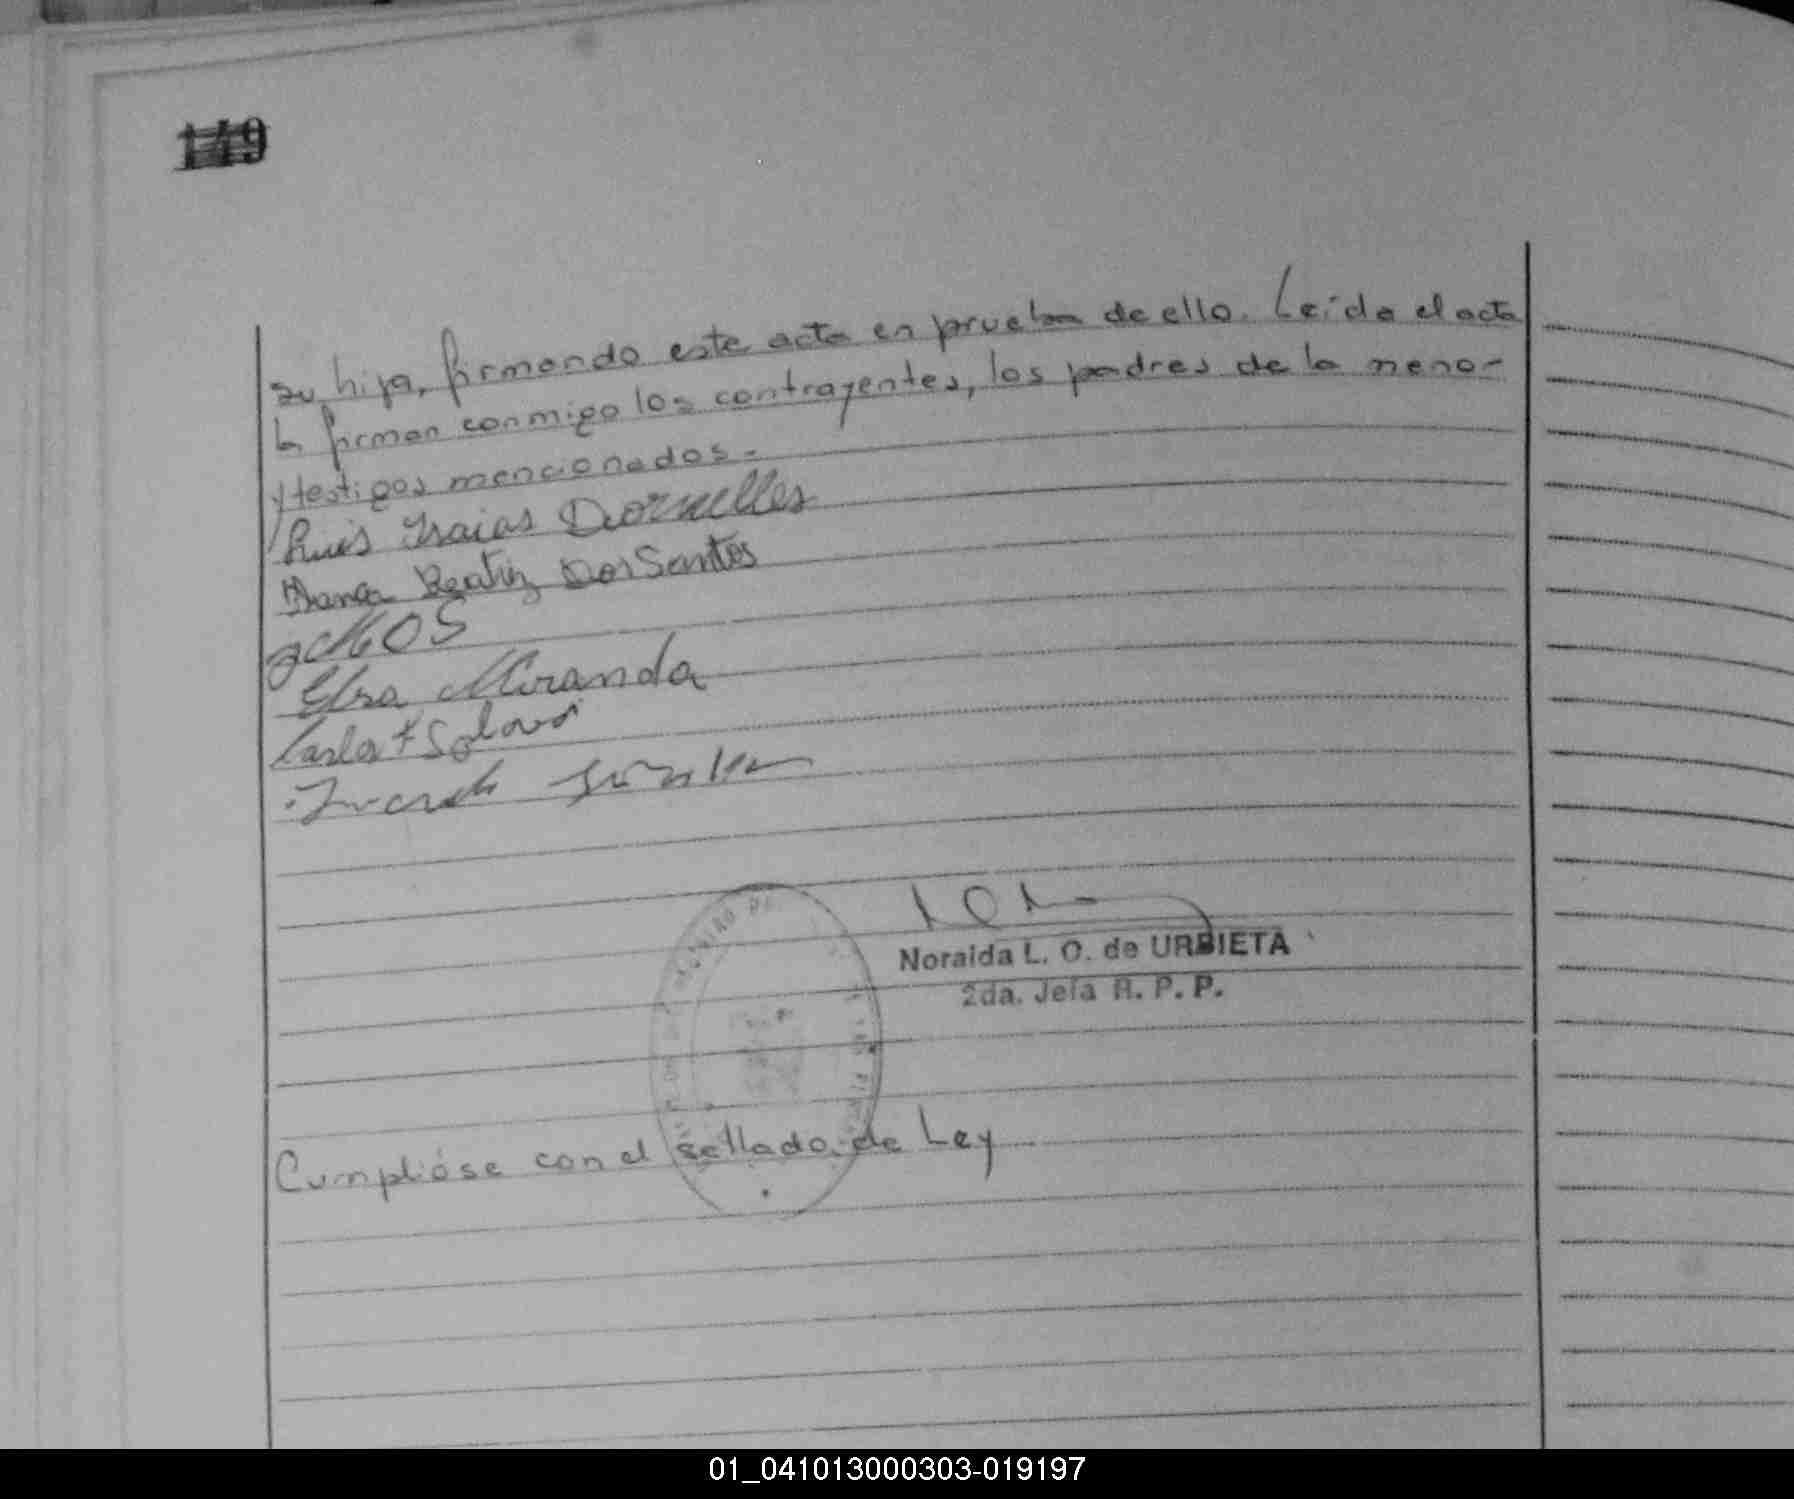 149
su hija, firmando este acta en prueba de ello. Leída el acta
la firman conmigo los contrayentes, los padres de la meno-
y testigos mencionados.-
Luis Isaias Dornelles
Blanca Beatriz Dos Santos
Elsa Miranda
Carlos
Noraida L. O. de URBIETA
2da. Jefa R. P. P.
Cumplióse con el sellado de Ley
01_041013000303-019197